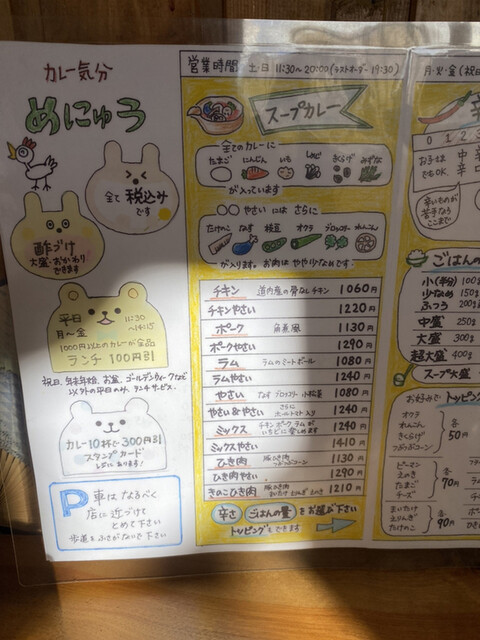 カレー気分
めにゅう
全て税込み
です
酢づけ
大盛・おかわり
できます
平日 11:30
月〜金 〜14:15
1000円以上のカレーが全品
ランチ 100円引
祝日、年末年始、お盆、ゴールデンウィークなど
以外の平日のみ、ランチサービス。
カレー10杯で300円引
スタンプカード
P 車はなるべく
店に近づけて
とめて下さい
歩道をふさがないで下さい
営業時間 土・日 11:30〜20:00(ラストオーダー19:30)
スープカレー
全てのカレーに
たまご にんじん いも しめじ きくらげ みずな
が入っています
○○やさい には さらに
たけのこ なす 枝豆 オクラ ブロッコリー れんこん
が入ります。お肉はやや少なめです。
チキン 道内産の骨なしチキン 1060円
チキンやさい 1220円
ポーク 角煮風 1130円
ポークやさい 1290円
ラム ラムのミートボール 1080円
ラムやさい 1240円
やさい なす ブロッコリー 小松菜 1080円
やさい&やさい さらに 1240円
ミックス チキン ポーク ラムが 1240円
いちどに楽しめます
ミックスやさい 1410円
ひき肉 豚ひき肉 1130円
つぶつぶコーン
ひき肉やさい 1290円
きのこひき肉 豚ひき肉 1210円
まいたけ えりんぎ えのき
辛さ ごはんの量 をお選び下さい
トッピングもできます
月・火・金(祝日
0 1 2 3
お子様
でもOK
中辛
辛口
辛いものが
苦手なら
ここまで
ごはんの
小(半分) 100g
少なめ 150g
ふつう 200g
中盛 250g
大盛 300g
超大盛 400g
スープ大盛
お好みで トッピング
オクラ
れんこん
きくらげ
つぶつぶコーン
各50円
ピーマン
えのき
たまご
チーズ
各70円
まいたけ
えりんぎ
たけのこ
各90円